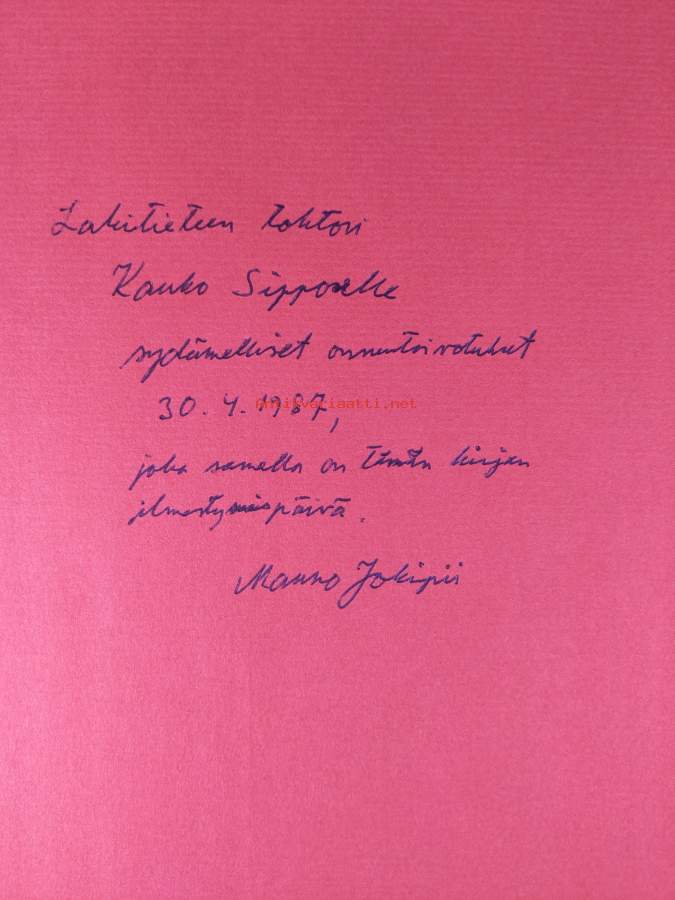 Lakitieteen tohtori
Kauko Sipposelle
sydämelliset onnentoivotukset
30.4.1987,
antikvariaatti.net
joka samalla on tämän kirjan
ilmestymispäivä.
Mauno Jokipii